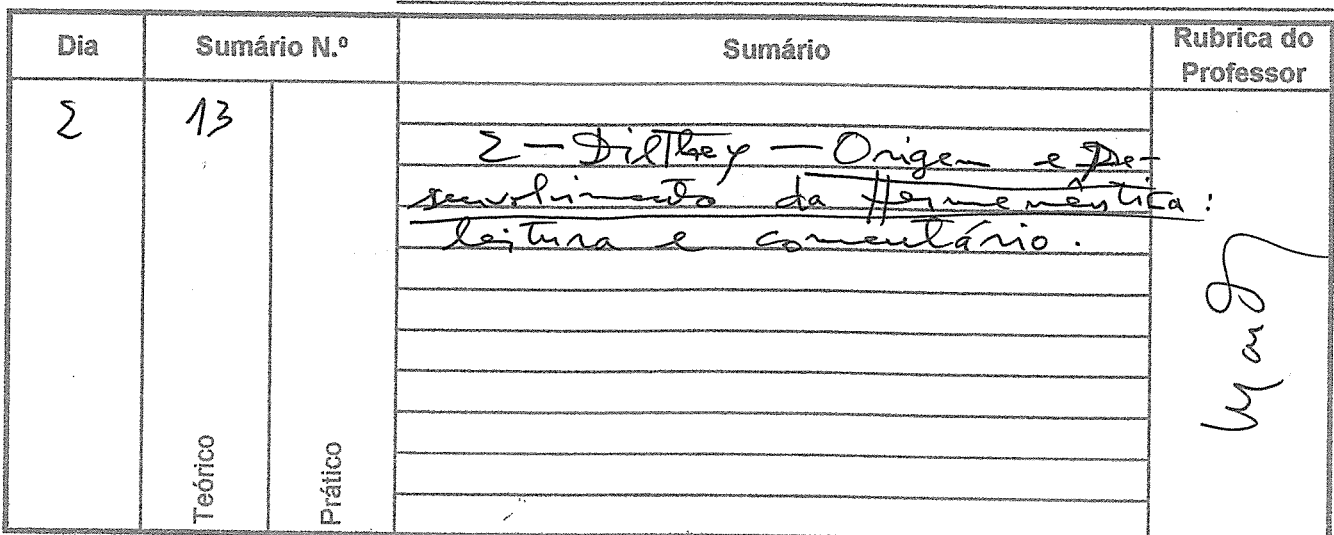 Dia Sumário N.º Sumário Rubrica do Professor
2 13
2 - Dilthey - Origem e De-
senvolvimento da Hermenêutica:
leitura e comentário.
Teórico Prático